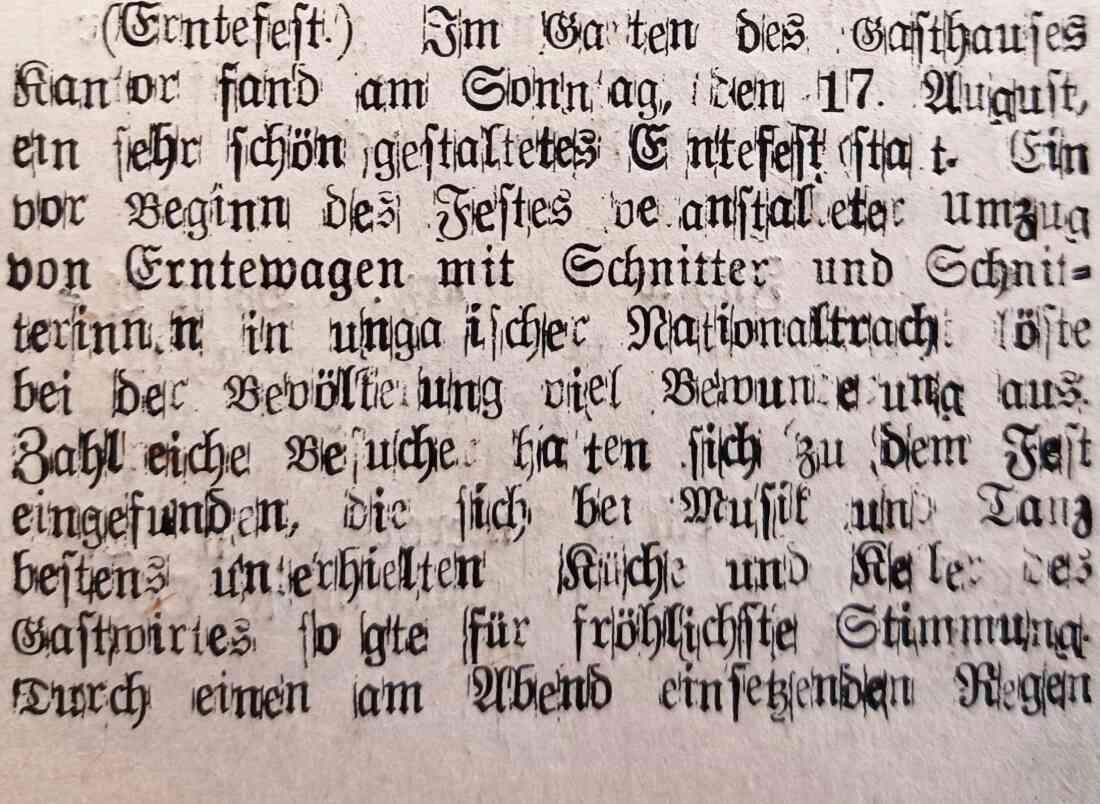 (Erntefest.) Im Garten des Gasthauses
Kantor fand am Sonntag, den 17. August,
ein sehr schön gestaltetes Erntefest statt. Ein
vor Beginn des Festes veranstalteter Umzug
von Erntewagen mit Schnitter und Schnit-
terinnen in ungarischer Nationaltracht löste
bei der Bevölkerung viel Bewunderung aus.
Zahlreiche Besucher hatten sich zu dem Fest
eingefunden, die sich bei Musik und Tanz
bestens unterhielten Küche und Keller des
Gastwirtes sorgte für fröhlichste Stimmung.
Durch einen am Abend einsetzenden Regen